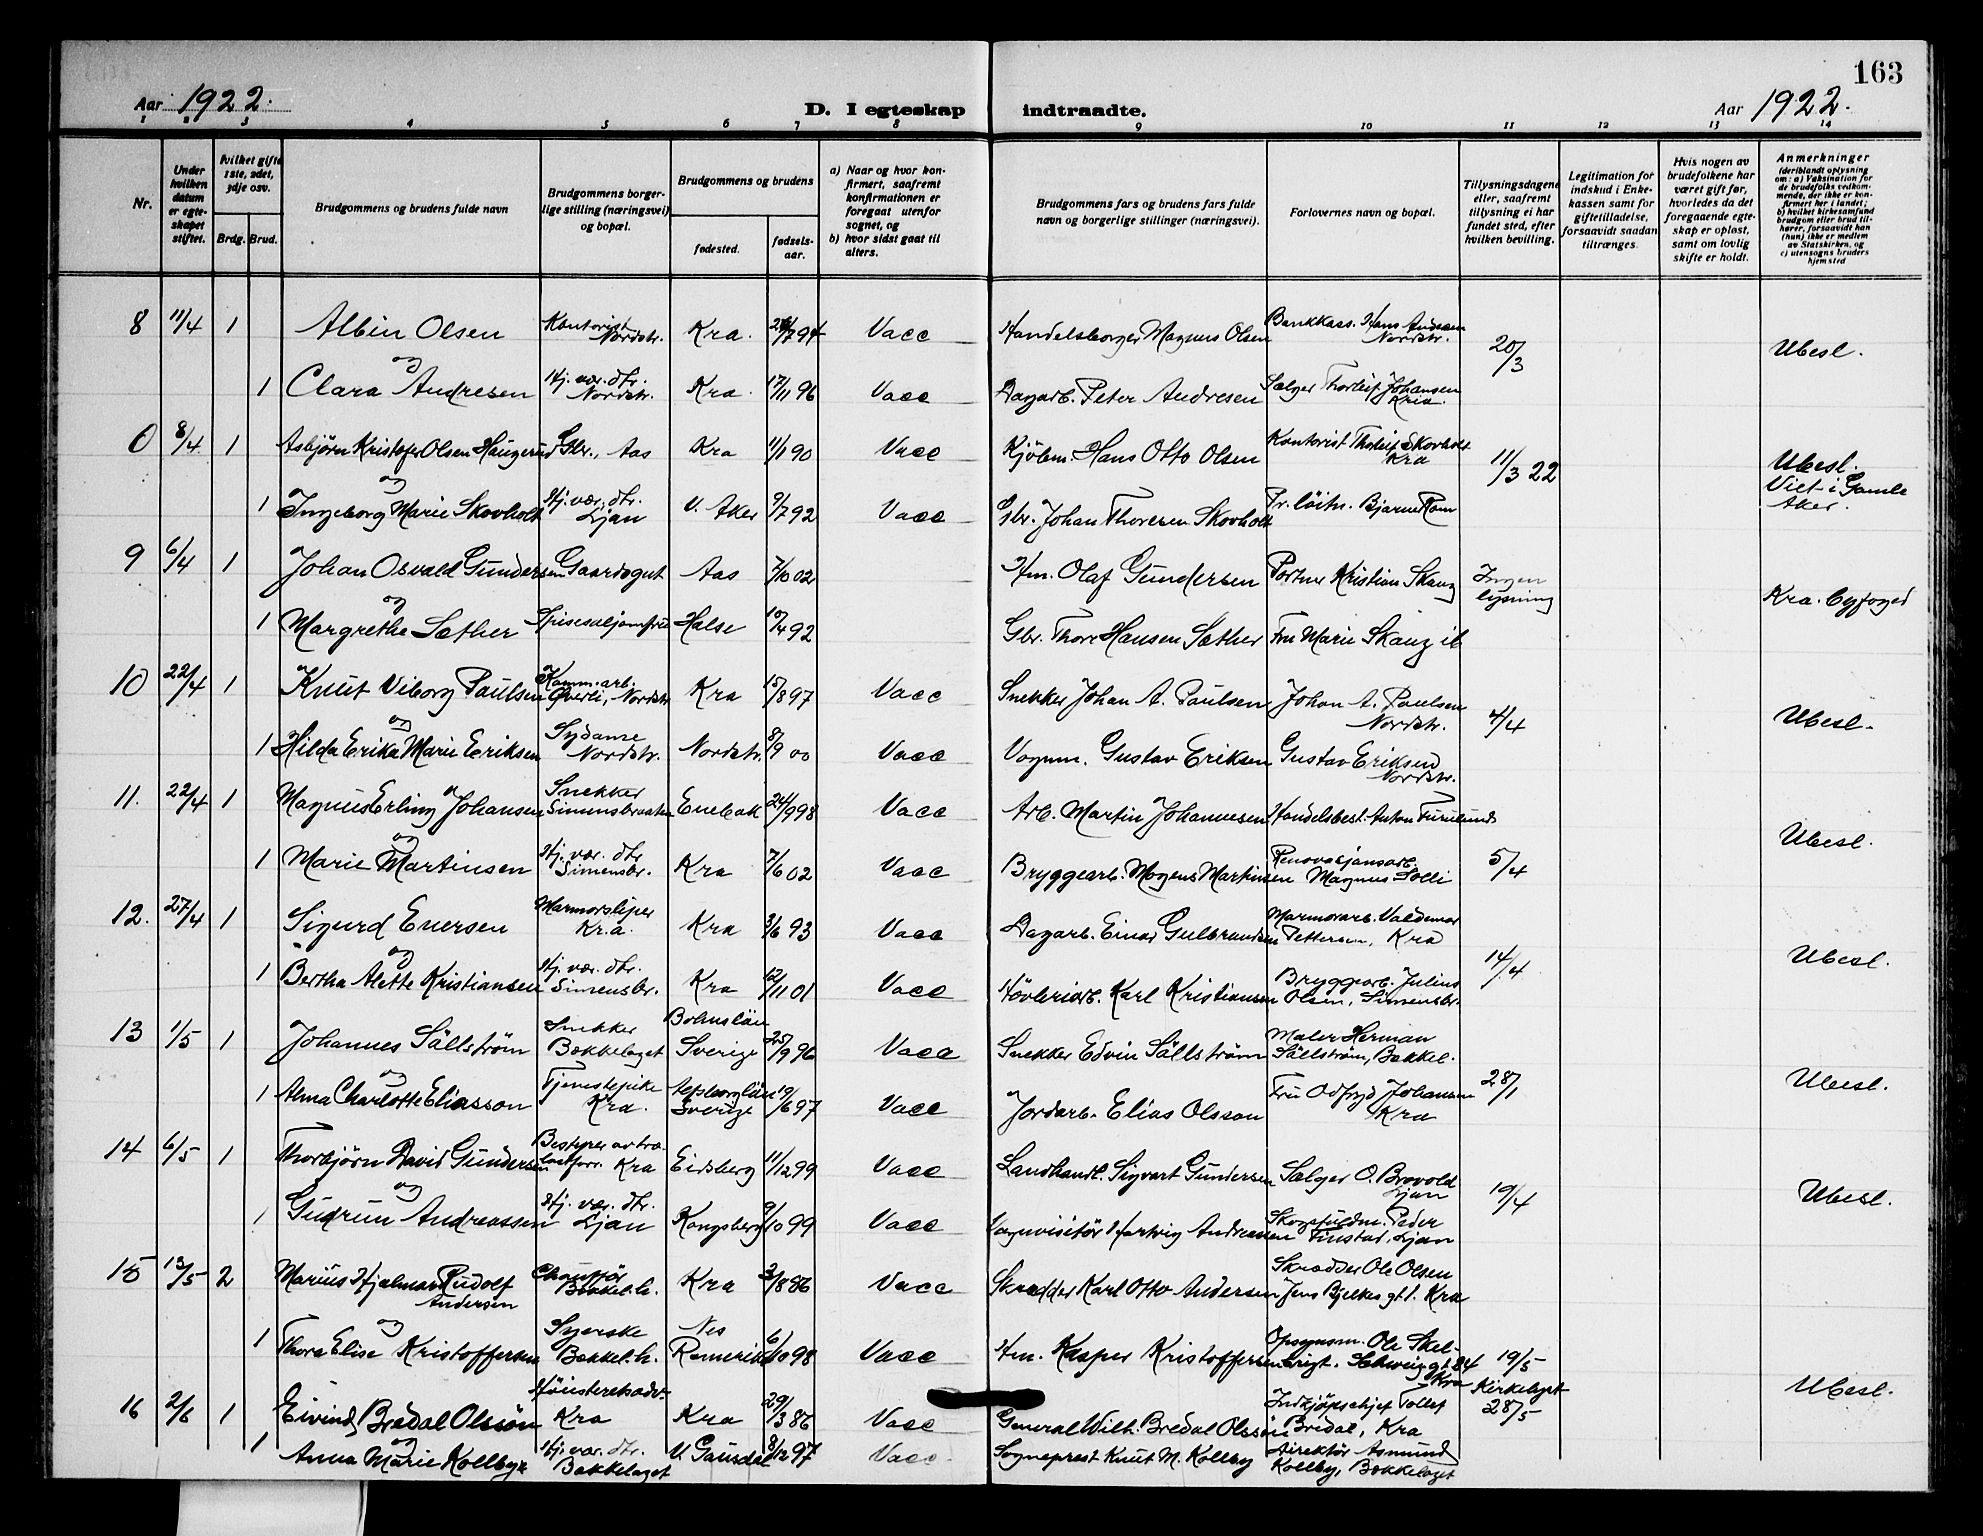 163
Aar 1922. D. I egteskap indtraadte. Aar 1922.
1 2 3 4 5 6 7 8 9 10 11 12 13 14
Nr.
Under hvilken datum er egteskapet stiftet.
Hvilket gifte 1ste, 2det, 3dje osv.
Brdg. Brud.
Brudgommens og brudens fulde navn
Brudgommens borgerlige stilling (næringsvei) og bopæl.
Brudgommens og brudens
fødested.
fødselsaar.
a) Naar og hvor konfirmert, saafremt konfirmationen er foregaat utenfor sognet, og
b) hvor sidst gaat til alters.
Brudgommens fars og brudens fars fulde navn og borgerlige stillinger (næringsvei).
Forlovernes navn og bopæl.
Tillysningsdagene eller, saafremt tillysning ei har fundet sted, efter hvilken bevilling.
Legitimation for indskud i Enkekassen samt for giftetilladelse, forsaavidt saadan tiltrænges.
Hvis nogen av brudefolkene har været gift før, hvorledes da det foregaaende egteskap er opløst, samt om lovlig skifte er holdt.
Anmerkninger (deriblandt oplysning om: a) Vaksination for de brudefolks vedkommende, der ikke er konfirmert her i landet; b) hvilket kirkesamfund brudgom eller brud tilhører, forsaavidt han (hun) ikke er medlem av Statskirken, og c) utensogns bruders hjemsted
8 11/4 1 Albin Olsen Kontorist Nordstr. Kra. 7 94 Vacc Handelsborger Magnus Olsen Bankkass. Hans Andersen Nordstr. 20/3 Ubesl.
og
1 Clara Andresen Hj. vær. dtr. Nordstr. Kra. 17/11 96 Vacc Dagarb. Peter Andresen Sælger Thorleif Johansen Kria.
0 8/4 1 Asbjørn Kristofer Olsen Haugerud Gbr., Aas Kra 11/1 90 Vacc Kjøbm. Hans Otto Olsen Kontorist Thorleif Skovholt Kra 11/3 22 Ubesl. Viet i Gamle Aker.
og
1 Ingeborg Marie Skovholt Hj. vær. dtr. Ljan V. Aker 9/7 92 Vacc Gbr. Johan Thoresen Skovholt Pr. löitn. Bjarne Rom
9 6/4 1 Johan Osvald Gundersen Gaardsgut Aas 7/10 02 Hm. Olaf Gundersen Portner Kristian Skaug Ingen lysning Kra. Byfoged
og
1 Margrethe Sæther Spisesaljomfru Halse 10/4 92 Gbr. Thore Hansen Sæther Fru Marie Skaug ib
10 22/4 1 Knut Viborg Paulsen Komm. arb. Øverli, Nordstr Kra 15/8 97 Vacc Snekker Johan A. Paulsen Johan A. Paulsen Nordstr. 4/4 Ubesl.
og
1 Hilda Erika Marie Eriksen Sydame Nordstr. Nordstr. 8/9 00 Vacc Vognm. Gustav Eriksen Gustav Eriksen Nordstr.
11. 22/4 1 Magnus Erling Johansen Snekker Simensbraaten Enebak 24/9 98 Vacc Arb. Martin Johannesen Handelsbest. Anton Furulund 5/4 Ubesl.
og
1 Marie Martinsen Hj. vær. dtr Simensbr. Kra 7/6 02 Vacc Bryggearb. Mogens Martinsen Renovasjonsarb. Magnus Solli
12. 27/4 1 Sigurd Enersen Marmorsliper Kr.a. Kra 3/6 93 Vacc Dagarb. Einar Gulbrandsen Marmorarb. Valdemar Pettersen, Kra 14/4 Ubesl.
og
1 Bertha Alette Kristiansen Hj. vær. dtr. Simensbr. Kra 12/11 01 Vacc Høvleriarb. Karl Kristiansen Bryggearb. Julius Olsen, Simensbr.
13 1/5 1 Johannes Sällström Snekker Bækkelaget Bohuslän Sverige 25/9 96 Vacc Snekker Edvin Sällström Maler Herman Sällström, Bækkel. 28/1 Ubesl.
og
1 Alma Charlotte Eliasson Tjenestepike Kra. Aelfsborglän Sverige 19/6 97 Vacc Jordarb. Elias Olsson Fru Odfryd Johansen Kra
14 6/5 1 Thorbjørn David Gundersen Bestyrer av trælastforr. Kra Eidsberg 11/12 99 Vacc Landhandl. Sigvart Gundersen Sælger O. Brovold Ljan 19/4 Ubesl.
og
1 Gudrun Andreassen Hj. vær. dtr. Ljan Kongsberg 9/10 99 Vacc Vognvisitör Hartvig Andreassen Skogfuldm. Peder Finstad, Ljan
15 13/5 2 Marius Hjalmar Rudolf Andersen Chaufför Bækkel.h. Kra 3/8 86 Vacc Skrædder Karl Otto Andersen Skrædder Ole Olsen Jens Bjelkes gt 1. Kra
og
1 Thora Elise Kristoffersen Syerske Bækkel.h. Nes Romerike 6/10 98 Vacc Hm. Kasper Kristoffersen Opsynsm. Ole Skelbrigt. Schweigg. 84 Kra 19/5 Kirkelyst
16 2/6 1 Eivind Bredal Olssøn Høiesteretsadv. Kra Kra 29/3 86 Vacc General Wilh. Bredal Olssøn Indkjøpschef Tollef Bredal, Kra 28/5 Ubesl.
og
1 Anna Marie Kolby Hj. vær. dtr. Bækkelaget V. Gausdal 8/12 97 Vacc Sogneprest Knut M. Kolby Direktör Asmund Kolby, Bækkelaget